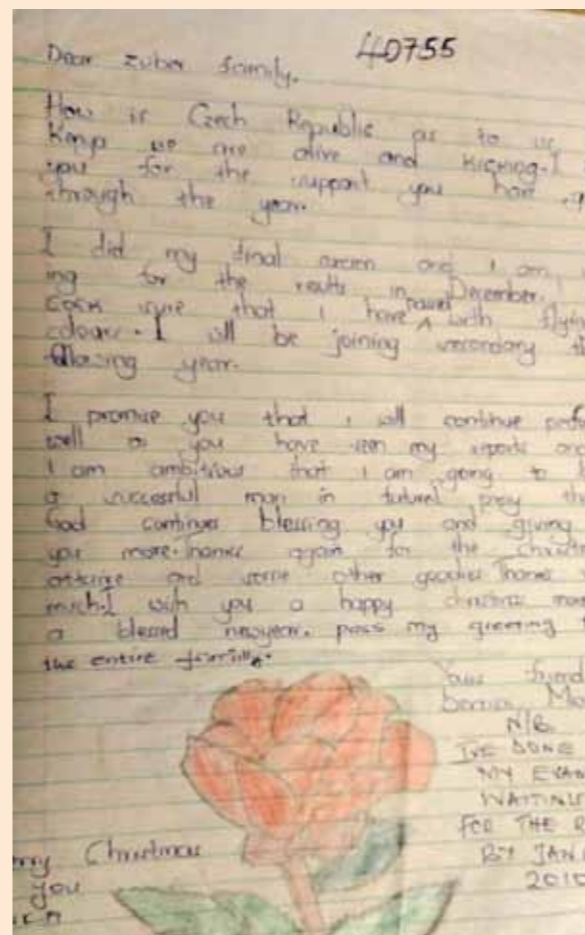 40755
Dear zuber family.
How is Czech Republic as to us
Kenya we are alive and kicking. I
you for the support you have
through the year.
I did my final and I am
ing for the results in December.
cock sure that I have passed with flying
colours. I will be joining secondary
following year.
I promise you that I will continue
well as you have seen my reports and
I am ambitious that I am going to
a successful man in future I pray
God continues blessing you and giving
you more. Thanks again for the
and some other goodies Thanks
much. I wish you a happy christmas
a blessed newyear. pass my greeting
the entire
Your friend
N/B
I'VE DONE
MY EXAM
WAITING
FOR THE R
BY JAN
2010
Christmas
you